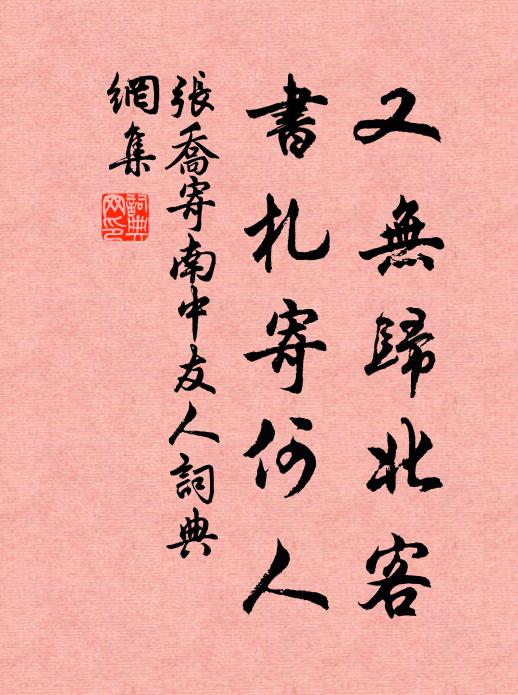 又無歸北客
書札寄何人
張喬寄南中友人詞典
網集
詞典
网印